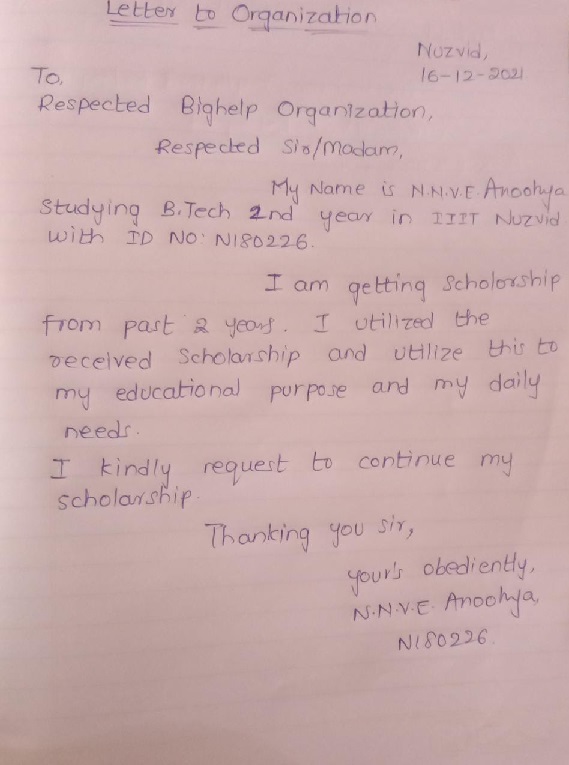 Letter to Organization
Nuzvid,
16-12-2021
To,
Respected Bighelp Organization,
Respected Sir/Madam,
My Name is N.N.V.E. Anoohya
Studying B.Tech 2nd year in IIIT Nuzvid
with ID NO: N180226.
I am getting Scholorship
from past 2 years. I utilized the
received Scholarship and utilize this to
my educational purpose and my daily
needs.
I kindly request to continue my
scholarship.
Thanking you sir,
your's obediently,
N.N.V.E. Anoohya,
N180226.